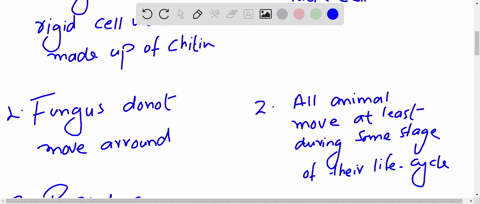 rigid cell
made up of Chitin
2. Fungus donot
move arround
2. All animal
move at least
during some stage
of their life-cycle